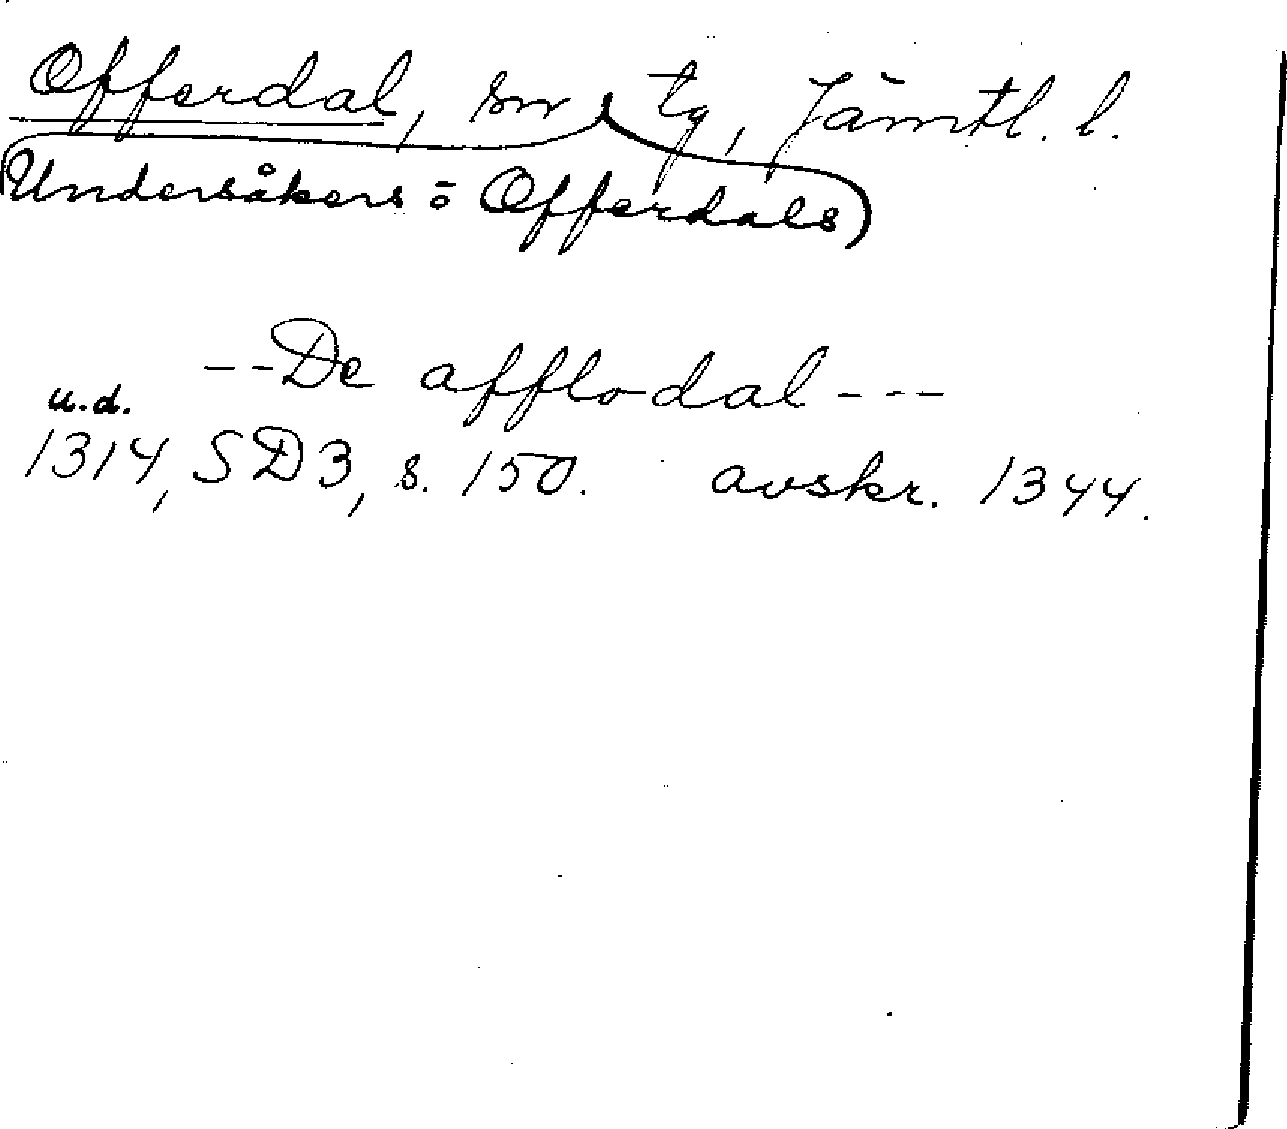 Offerdal, sn, tg, Jämtl. l.
Undersåkers o Offerdals
--De afflodal---
u.d.
1314, SD3, s. 150. avskr. 1344.